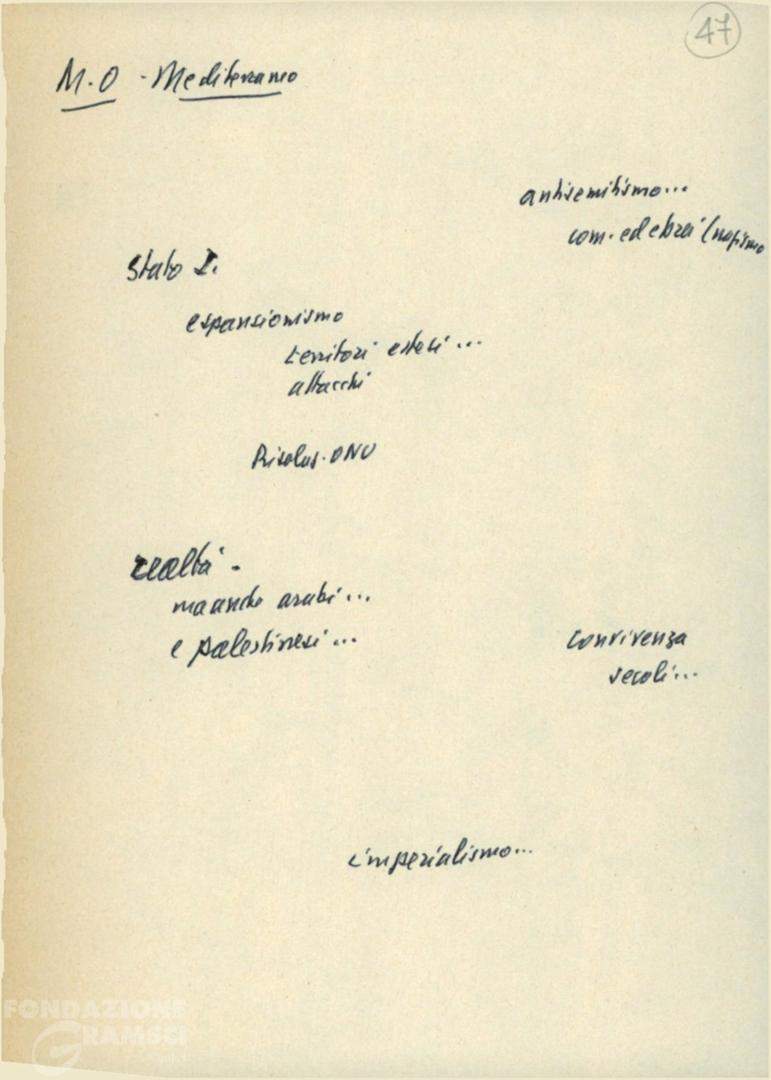 47
M.O - Mediterraneo
antisemitismo...
com. ed ebrei (nazismo
Stato I.
espansionismo
territori estesi...
attacchi
Risoluz. ONU
realtà -
ma anche arabi...
e palestinesi...
convivenza
secoli...
imperialismo...
FONDAZIONE
GRAMSCI